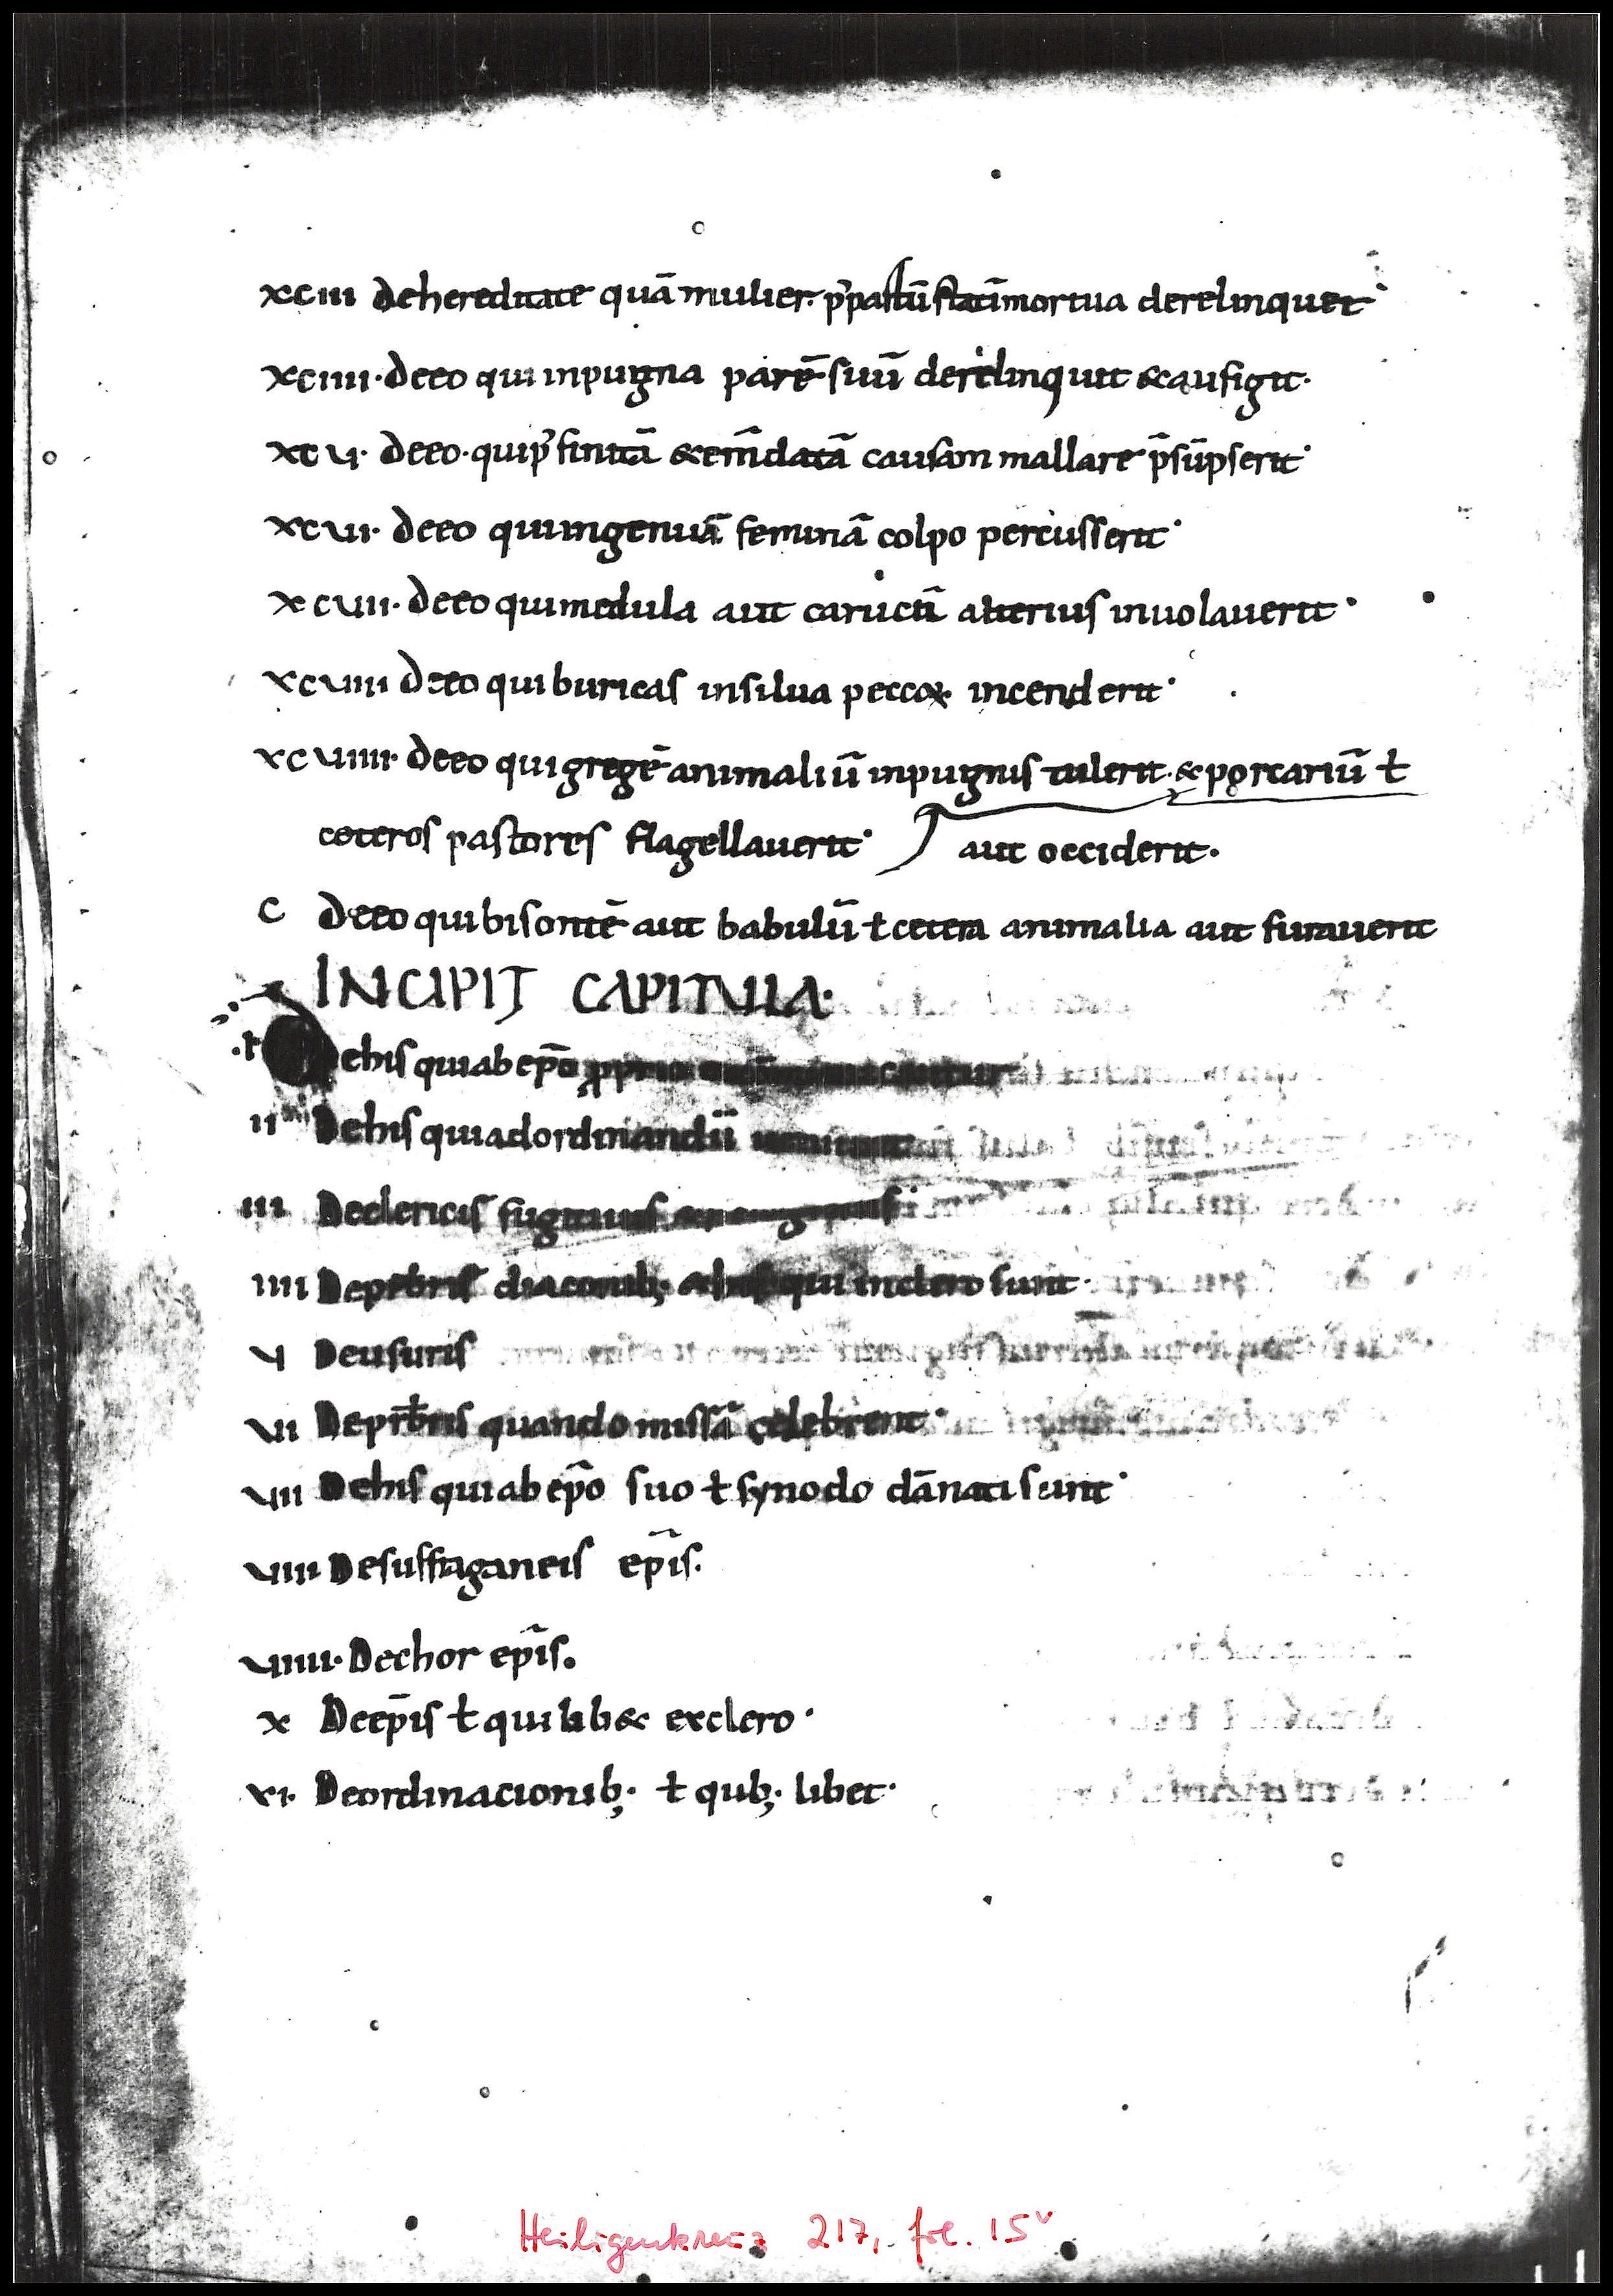 xciii De hereditate quā mulier. p᷒ partū statī mortua derelinquet·
xciiii· De eo qui in pugna parē suū derelinquit & aufigit·
xcv· De eo· qui p᷒ finitā & em̄datā causam mallare p̄sūpserit·
xcvi· De eo qui ingenuā feminā colpo percusserit·
xcvii· De eo qui medula aut carucā alterius inuolauerit·
xcviii De eo qui buricas in silua peccoꝝ incenderit·
xcviiii· De eo qui gregē animaliū in pugnis tulerit· & porcariū ł
coteros pastores flagellauerit· aut occiderit·
c De eo qui bisontē aut babulū ł cetera animalia aut furauerit
INCIPIT CAPITULA·
·i· De his qui ab ep̄o ꝓprio
ii De his qui ad ordinandū
iii De clericis fugitiuis
iiii De prb̄ris diaconib; & his qui in clero sunt·
v De usuris
vi De prb̄ris quando missā celebrent·
vii De his qui ab ep̄o suo ł synodo dānati sunt·
viii De suffraganeis ep̄is·
viiii· De chor ep̄is·
x De ep̄is ł qui lib& ex clero·
xi· De ordinacionib;· ł quib;· libet·
Heiligenkreuz 217, fol. 15ᵛ